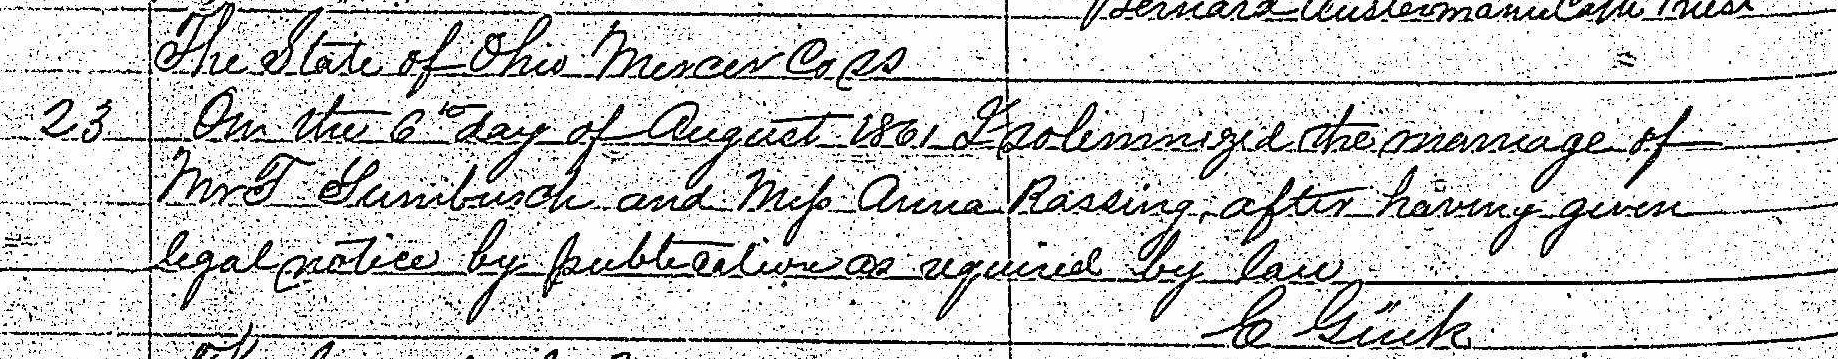 Bernard Austermann Cath Priest
The State of Ohio Mercer Co ss
23 On the 6th day of August 1861 I solemnized the marriage of
Mr T Sunibusch and Miss Anna Rassing, after having given
legal notice by publication as required by law
C Gück